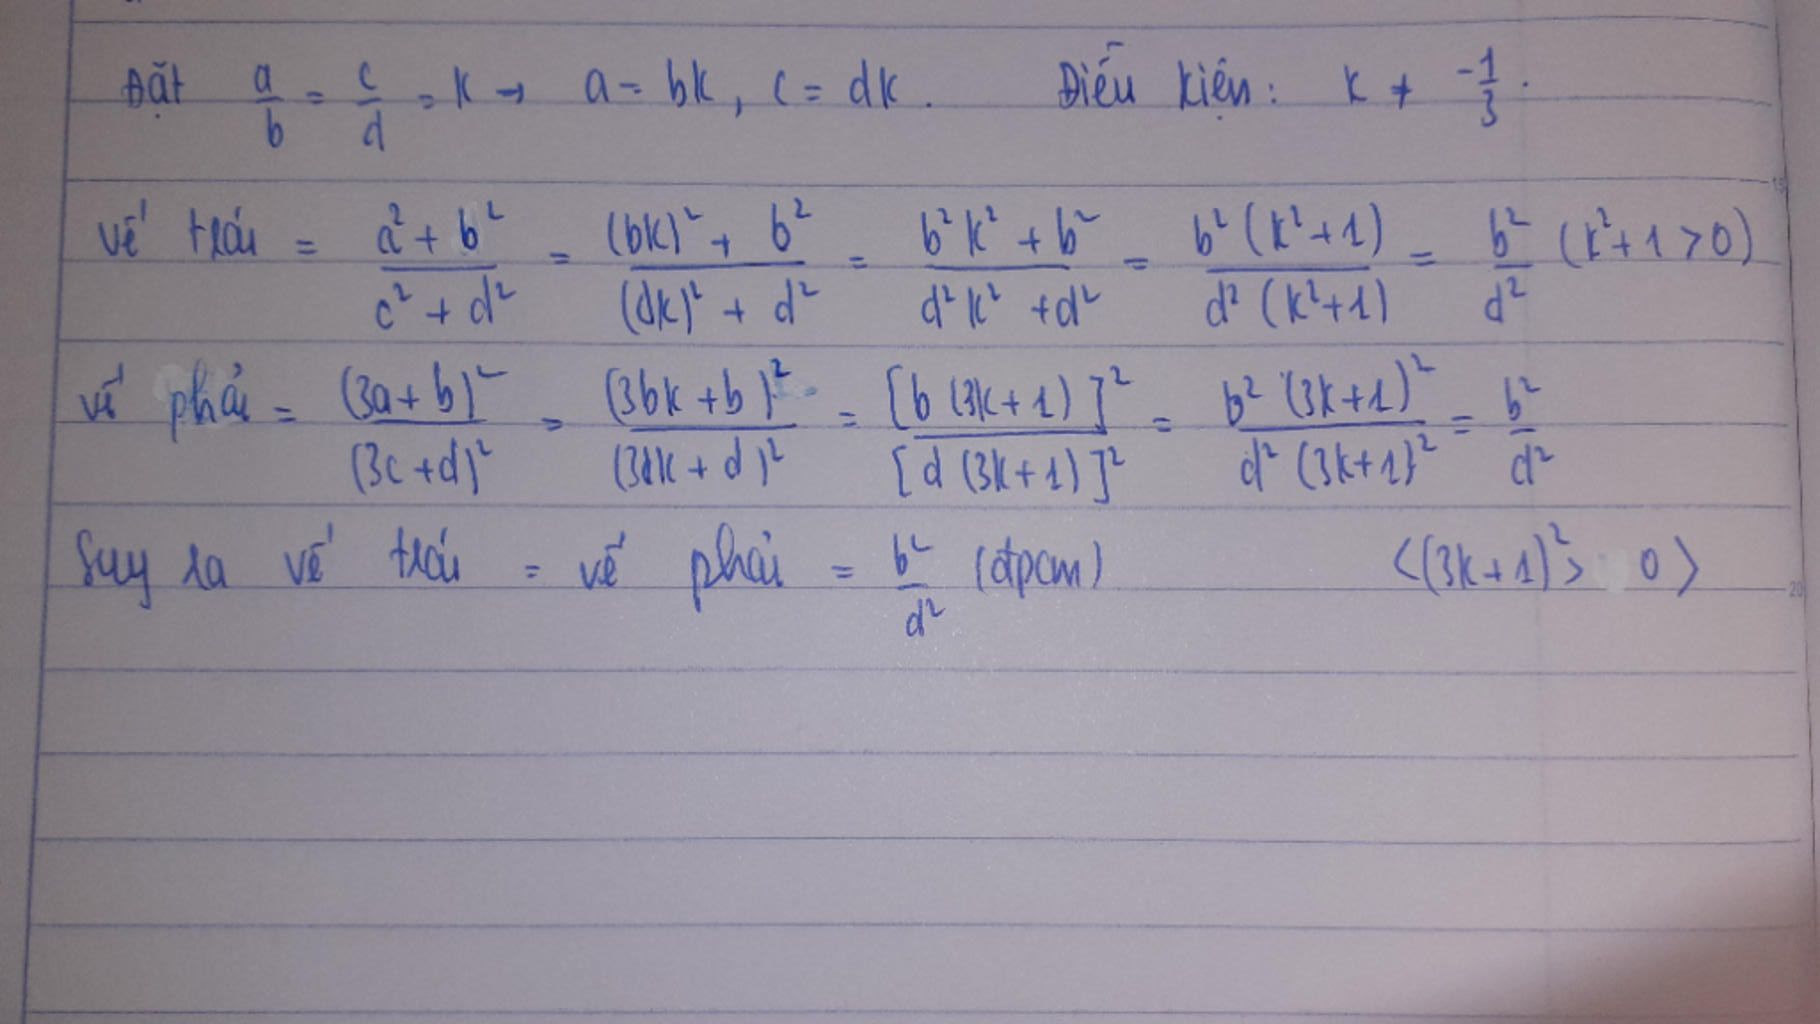 Đặt a/b = c/d = k → a = bk, c = dk. Điều kiện: k ≠ -1/3.
Vế trái = (a² + b²)/(c² + d²) = ((bk)² + b²)/((dk)² + d²) = (b²k² + b²)/(d²k² + d²) = (b²(k²+1))/(d²(k²+1)) = b²/d² (k²+1 > 0)
Vế phải = (3a + b)²/(3c + d)² = (3bk + b)²/(3dk + d)² = [b(3k+1)]²/[d(3k+1)]² = (b²(3k+1)²)/(d²(3k+1)²) = b²/d²
Suy ra vế trái = vế phải = b²/d² (đpcm) <(3k+1)² > 0>